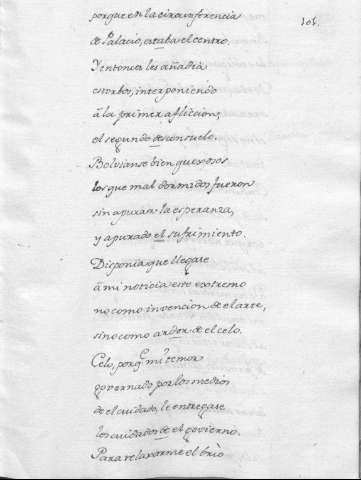 101.
porque en la circunferencia
de Palacio, estaba el centro.
Y entonces les añadia
estorbos, interponiendo
à la primer afliccion,
el segundo desconsuelo.
Bolvianse bien quexosos
los que mal dormidos fueron
sin apurar la esperanza,
y apurado el sufrimiento.
Disponia que llegase
à mi noticia este extremo
no como invencion de el arte,
sino como ardor de el celo.
Celo, porq.e mi temor
governado por los medios
de el cuidado, le entregase
los cuidados de el govierno.
Para relaxarme el brio